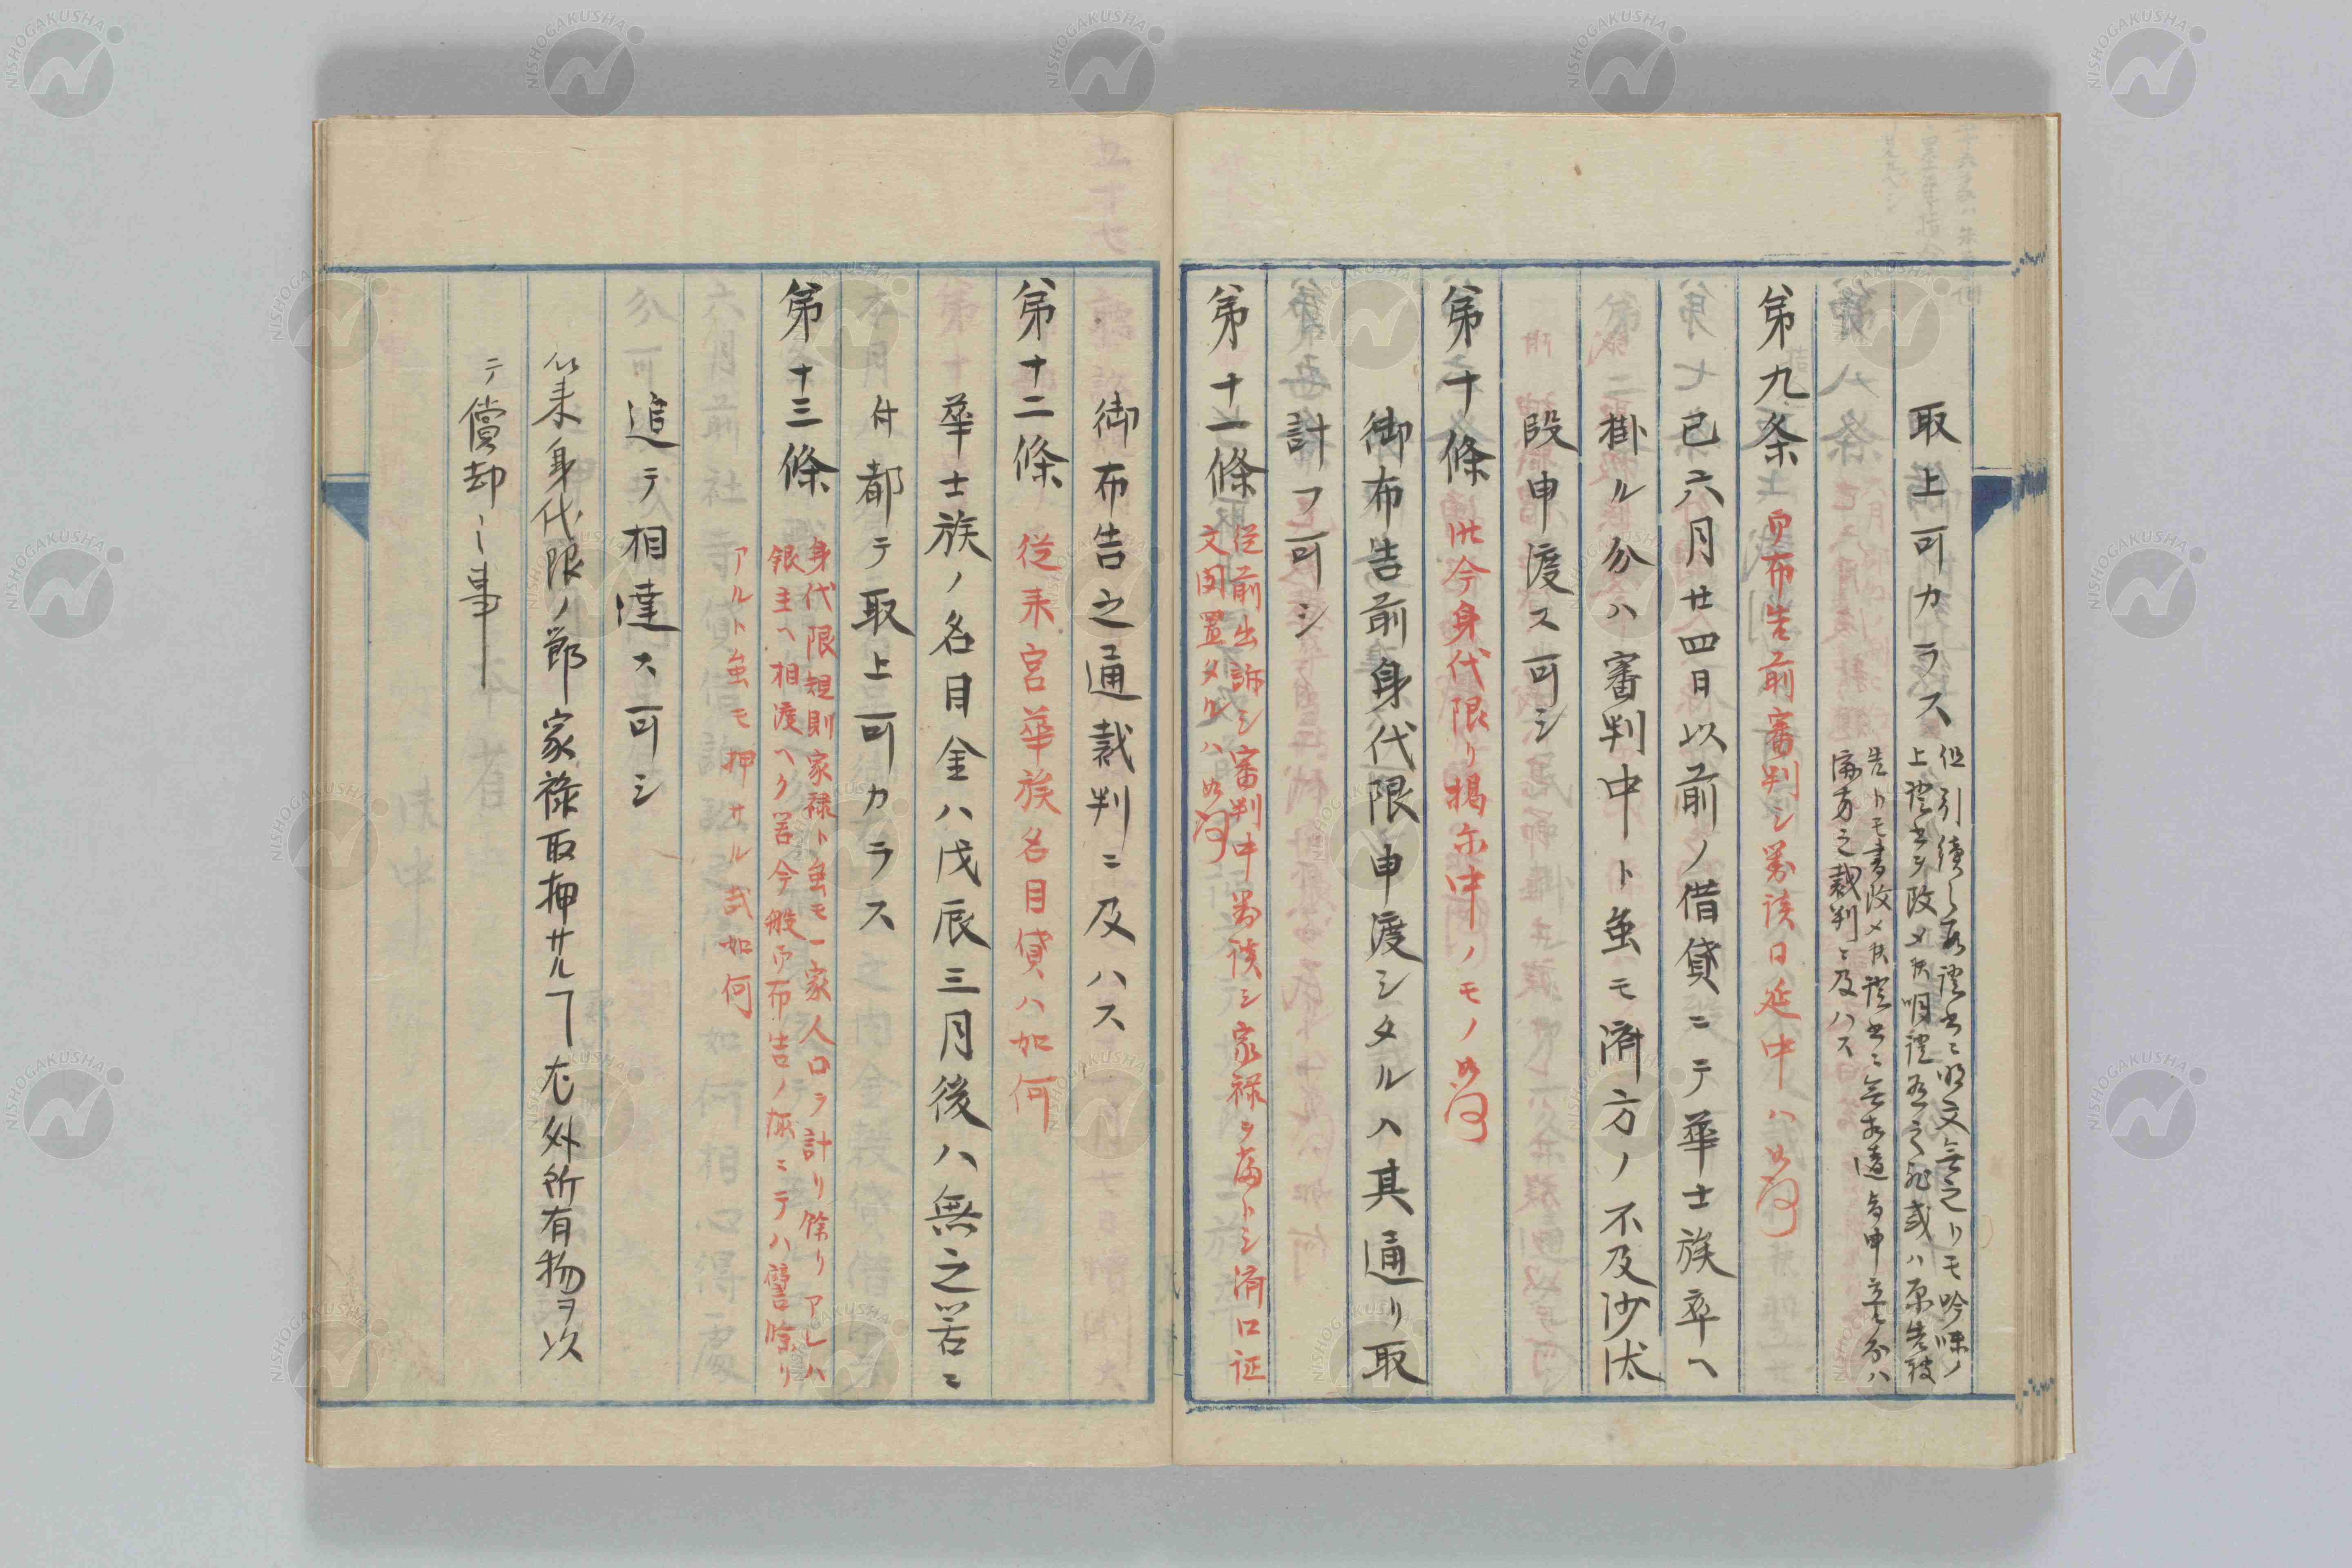 取上可カラス
但引續之取證書ニ明文無之トモ吟味ノ
上證書ヲ改メ又ハ明證有之歟或ハ原告被
告トモ書改メ又ハ證書ニ無相違旨申立候分ハ
濟方之裁判ニ及ハス
第九条 御布告前審判シ對談日延中ハ如何
己六月廿四日以前ノ借貸ニテ華士族卒ヘ
掛ル分ハ審判中ト虽モ済方ノ不及沙汰
段申渡ス可シ
第十條 此今身代限リ掲示中ノモノ如何
御布告前身代限申渡シタルハ其通リ取
計フ可シ
第十一條 従前出訴シ審判中對談シ家禄ヲ當トシ済口証
文聞置タルハ如何
御布告之通裁判ニ及ハス
第十二條 従来宮華族名目貸ハ如何
華士族ノ名目金ハ戊辰三月後ハ無之筈ニ
付都テ取上可カラス
第十三條 身代限規則家禄ト虽モ一家人口ヲ計リ餘リアレハ
銀主ヘ相渡ヘク筈今般御布告ノ旅ニテハ譬餘リ
アルト虽モ押サル哉如何
追テ相達ス可シ
以来身代限ノ節家禄取押サルヿ尤外所有物ヲ以
テ償却ノ事